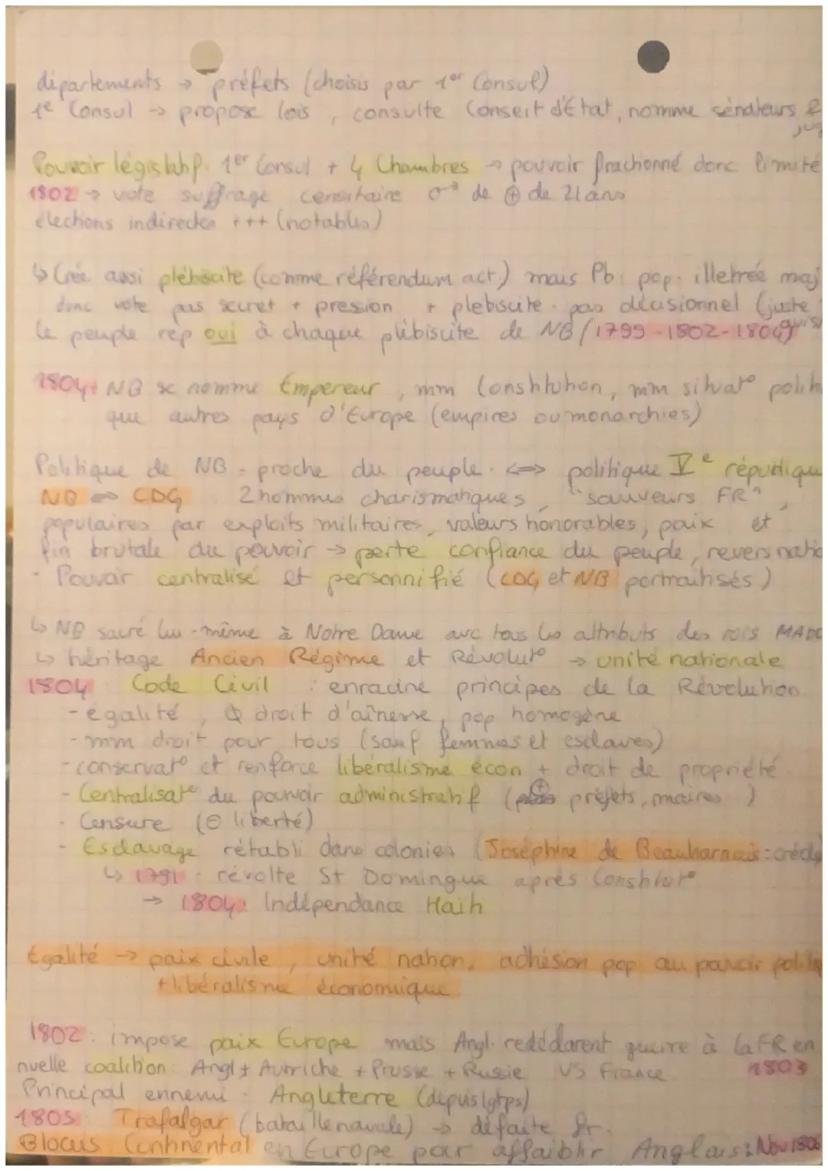 départements → préfets (choisis par 1er Consul)
1e Consul → propose lois, consulte Conseil d'État, nomme sénateurs &
Pouvoir législatif: 1er Consul + 4 Chambres → pouvoir fractionné donc limité
1802 → vote suffrage censitaire ♂ de ⊕ de 21 ans
élections indirectes +++ (notables)
↳ Crée aussi plébiscite (comme référendum act.) mais Pb: pop. illetrée maj
donc vote pas secret + pression + plebiscite pas décisionnel (juste
Le peuple rép oui à chaque plébiscite de NB (1799-1802-1804)
1804: NB se nomme Empereur, mm Constitution, mm situat° polit
que autres pays d'Europe (empires ou monarchies)
Politique de NB - proche du peuple. ⟺ politique Ve république
NB ⟺ CDG 2 hommes charismatiques, "sauveurs FR",
populaires par exploits militaires, valeurs honorables, paix et
fin brutale du pouvoir → perte confiance du peuple, revers natio
- Pouvoir centralisé et personnifié (CDG et NB portraitisés)
↳ NB sacré lui-même à Notre Dame avc tous les attributs des rois
↳ héritage Ancien Régime et Révolut° → unité nationale
1804 Code Civil : enracine principes de la Révolution
- égalité, droit d'aînesse, pop homogène
- mm droit pour tous (sauf femmes et esclaves)
- conservat° et renforce libéralisme écon + droit de propriété
- Centralisat° du pouvoir administratif (préfets, maires)
- Censure (⊖ liberté)
- Esclavage rétabli dans colonies (Joséphine de Beauharnais:
↳ 1791: révolte St Domingue après Constitut°
→ 1804: Indépendance Haïti
Egalité → paix civile, unité nation, adhésion pop au pouvoir polit
+ libéralisme économique
1802: impose paix Europe mais Angl. redéclarent guerre à la FR en
1803
nvelle coalition: Angl + Autriche + Prusse + Russie VS France
Principal ennemi: Angleterre (depuis lgtps)
1805: Trafalgar (bataille navale) → défaite fr.
Blocus Continental en Europe pour affaiblir Anglais: Nov 1806